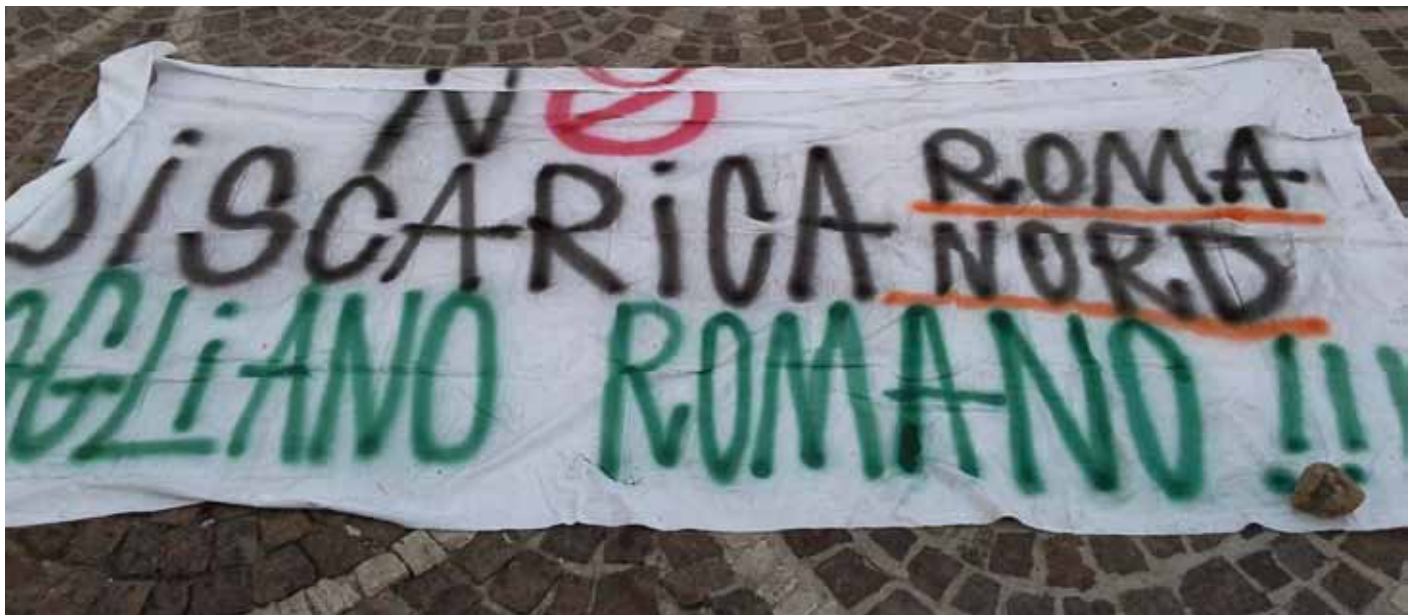 NO
DISCARICA ROMA
NORD
AGLIANO ROMANO !!!